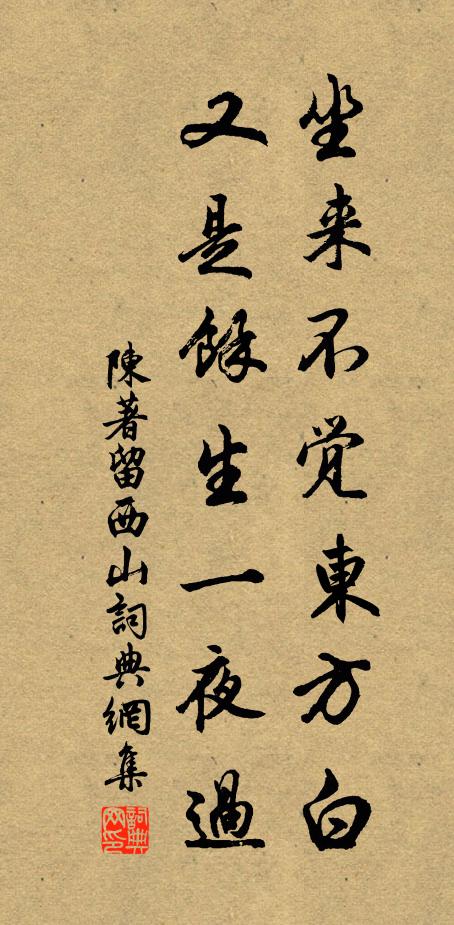 坐来不觉東方白
又是餘生一夜過
陳著留西山詞典網集
詞典網印